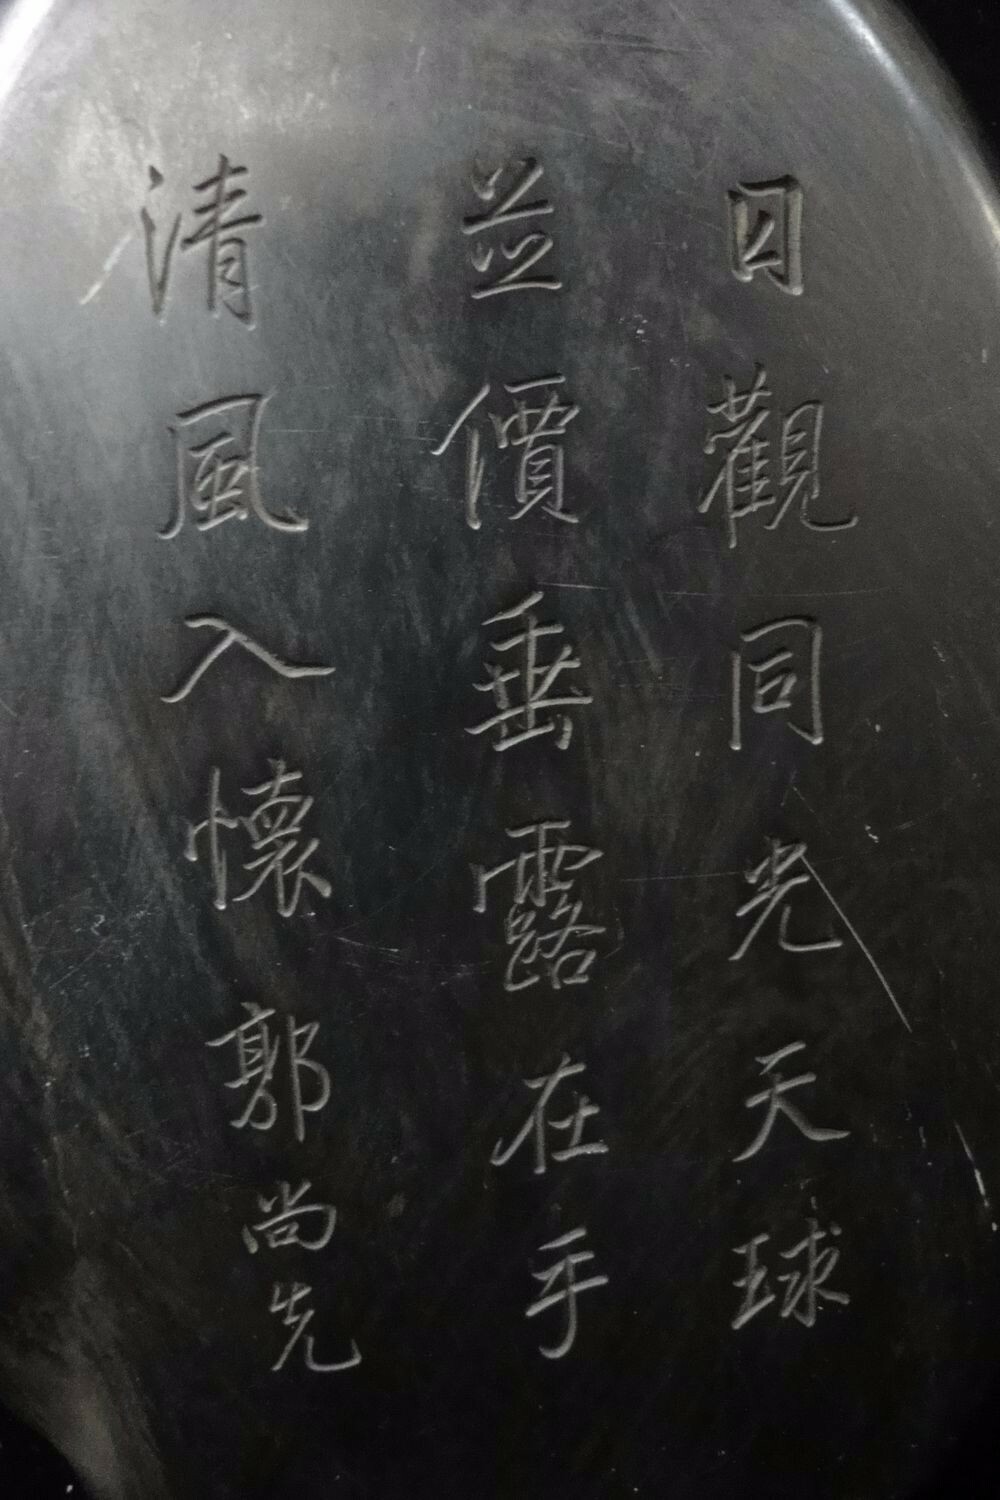 日觀同光天球
並價垂露在手
清風入懷郭尚先